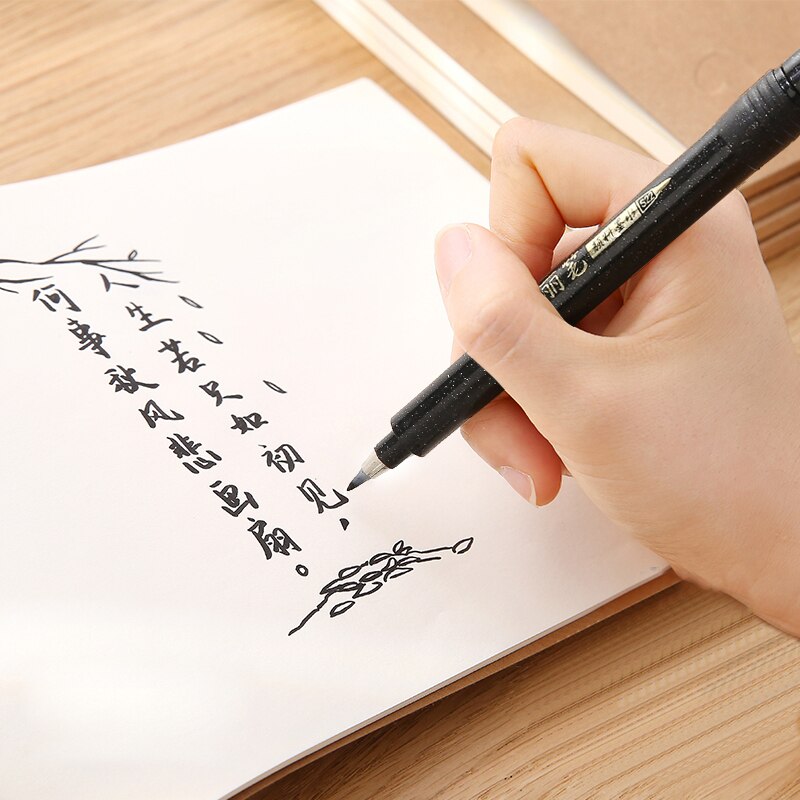 人生若只如初见，
何事秋风悲画扇。
丽笔